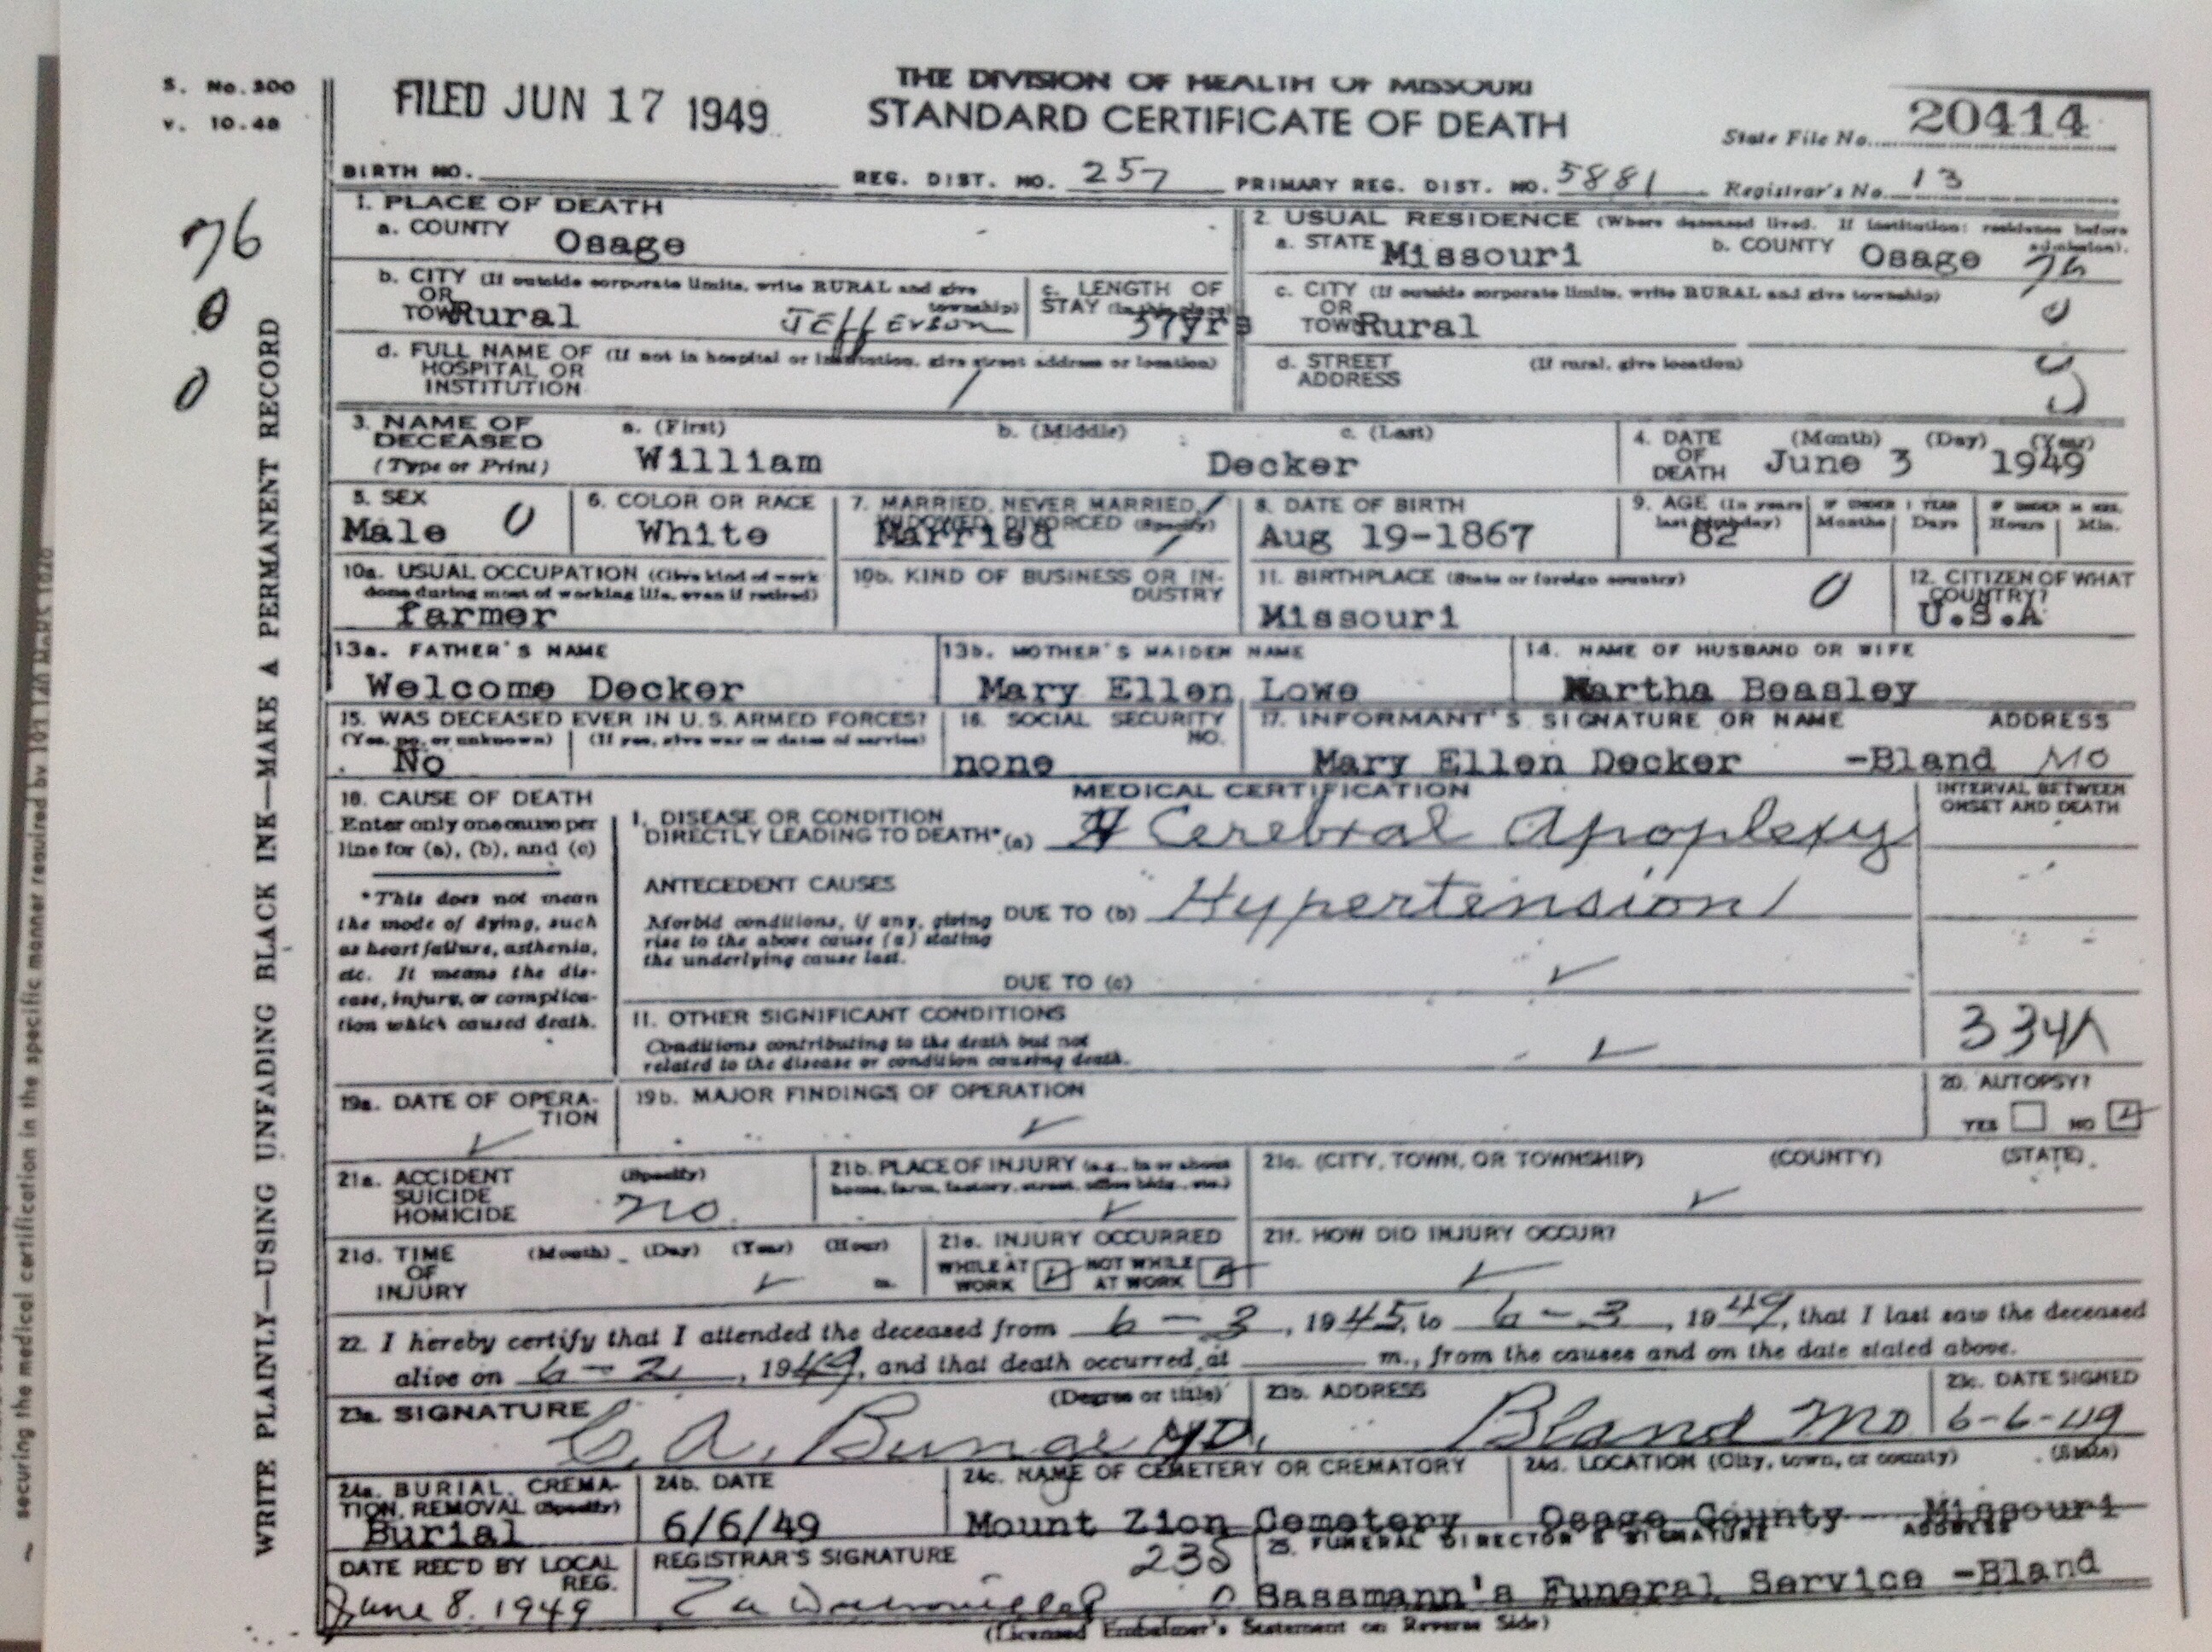 S. No. 300
v. 10.48
FILED JUN 17 1949
THE DIVISION OF HEALTH OF MISSOURI
STANDARD CERTIFICATE OF DEATH
State File No. 20414
BIRTH NO. REG. DIST. NO. 257 PRIMARY REG. DIST. NO. 5881 Registrar's No. 13
76
0
0
WRITE PLAINLY—USING UNFADING BLACK INK—MAKE A PERMANENT RECORD
securing the medical certification in the specific manner required by
1. PLACE OF DEATH
a. COUNTY Osage
2. USUAL RESIDENCE (Where deceased lived. If institution: residence before admission).
a. STATE Missouri b. COUNTY Osage 76
b. CITY (If outside corporate limits, write RURAL and give township)
OR
TOWN Rural Jefferson
c. LENGTH OF
STAY (in this place) 57yrs
c. CITY (If outside corporate limits, write RURAL and give township)
OR
TOWN Rural 0
d. FULL NAME OF (If not in hospital or institution, give street address or location)
HOSPITAL OR
INSTITUTION
d. STREET (If rural, give location)
ADDRESS
3. NAME OF
DECEASED
(Type or Print)
a. (First) b. (Middle) c. (Last)
William Decker
4. DATE (Month) (Day) (Year)
OF
DEATH June 3 1949
5. SEX
Male 0
6. COLOR OR RACE
White
7. MARRIED, NEVER MARRIED,
WIDOWED, DIVORCED (Specify)
Married
8. DATE OF BIRTH
Aug 19-1867
9. AGE (In years last birthday) IF UNDER 1 YEAR IF UNDER 24 HRS.
82 Months Days Hours Min.
10a. USUAL OCCUPATION (Give kind of work
done during most of working life, even if retired)
farmer
10b. KIND OF BUSINESS OR IN-
DUSTRY
11. BIRTHPLACE (State or foreign country)
Missouri 0
12. CITIZEN OF WHAT
COUNTRY?
U.S.A
13a. FATHER'S NAME
Welcome Decker
13b. MOTHER'S MAIDEN NAME
Mary Ellen Lowe
14. NAME OF HUSBAND OR WIFE
Martha Beasley
15. WAS DECEASED EVER IN U.S. ARMED FORCES?
(Yes, no, or unknown) (If yes, give war or dates of service)
No
16. SOCIAL SECURITY
NO.
none
17. INFORMANT'S SIGNATURE OR NAME ADDRESS
Mary Ellen Decker -Bland MO
18. CAUSE OF DEATH
Enter only one cause per
line for (a), (b), and (c)
*This does not mean
the mode of dying, such
as heart failure, asthenia,
etc. It means the dis-
ease, injury, or complica-
tion which caused death.
MEDICAL CERTIFICATION
INTERVAL BETWEEN
ONSET AND DEATH
I. DISEASE OR CONDITION
DIRECTLY LEADING TO DEATH* (a) Cerebral Apoplexy
ANTECEDENT CAUSES
Morbid conditions, if any, giving
rise to the above cause (a) stating
the underlying cause last.
DUE TO (b) Hypertension
DUE TO (c)
II. OTHER SIGNIFICANT CONDITIONS
Conditions contributing to the death but not
related to the disease or condition causing death.
334
19a. DATE OF OPERA-
TION
19b. MAJOR FINDINGS OF OPERATION
20. AUTOPSY?
YES NO
21a. ACCIDENT (Specify)
SUICIDE
HOMICIDE no
21b. PLACE OF INJURY (e.g., in or about
home, farm, factory, street, office bldg., etc.)
21c. (CITY, TOWN, OR TOWNSHIP) (COUNTY) (STATE)
21d. TIME (Month) (Day) (Year) (Hour)
OF
INJURY m.
21e. INJURY OCCURRED
WHILE AT WORK NOT WHILE AT WORK
21f. HOW DID INJURY OCCUR?
22. I hereby certify that I attended the deceased from 6-3, 1945, to 6-3, 1949, that I last saw the deceased
alive on 6-2, 1949, and that death occurred at m., from the causes and on the date stated above.
23a. SIGNATURE (Degree or title)
C. A. Bunge MD.
23b. ADDRESS
Bland Mo
23c. DATE SIGNED
6-6-49
24a. BURIAL, CREMA-
TION, REMOVAL (Specify)
Burial
24b. DATE
6/6/49
24c. NAME OF CEMETERY OR CREMATORY
Mount Zion Cemetery
24d. LOCATION (City, town, or county) (State)
Osage County Missouri
DATE REC'D BY LOCAL
REG.
June 8. 1949
REGISTRAR'S SIGNATURE 235
25. FUNERAL DIRECTOR'S SIGNATURE ADDRESS
Sassmann's Funeral Service -Bland
(Licensed Embalmer's Statement on Reverse Side)